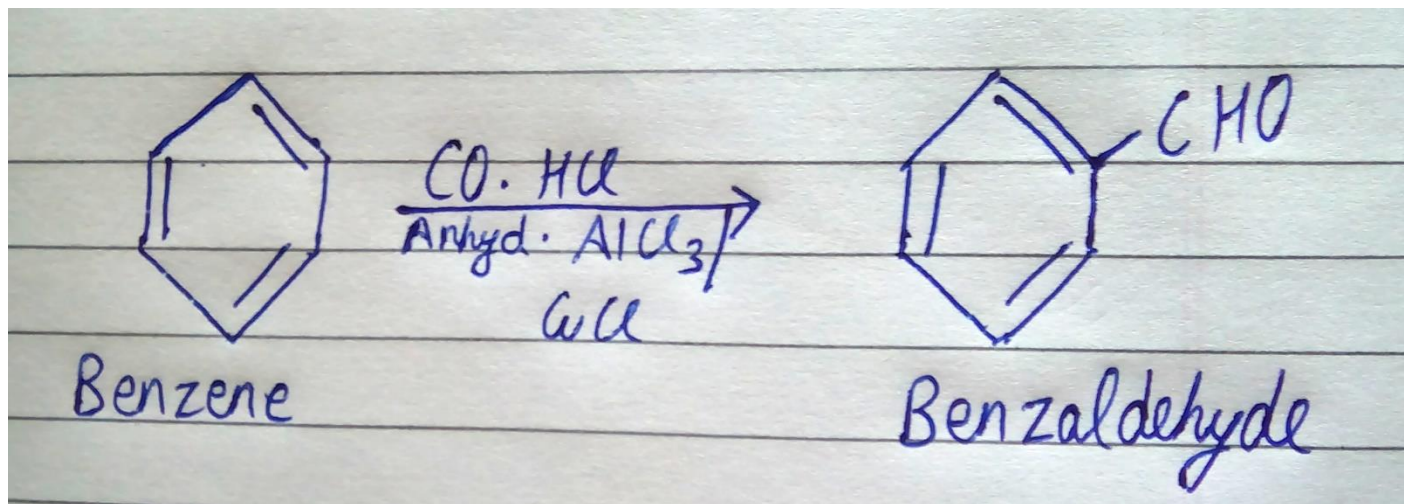 CHO
CO. HCl
Anhyd. AlCl3/
CuCl
Benzene
Benzaldehyde